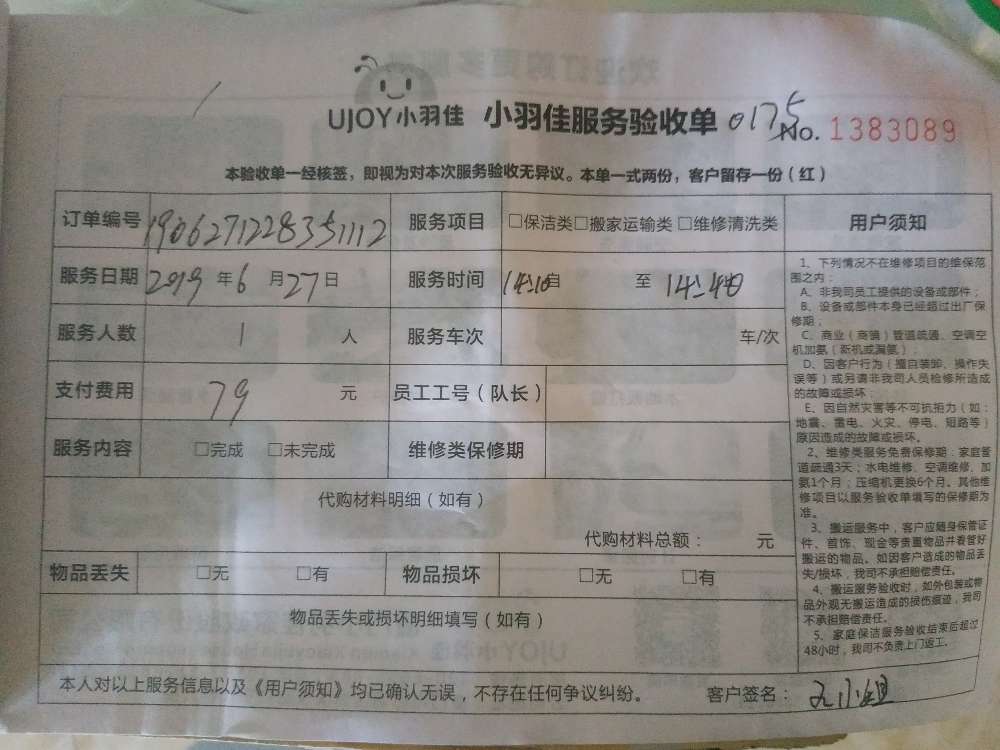 UJOY小羽佳 小羽佳服务验收单 0175 No. 1383089
本验收单一经核签，即视为对本次服务验收无异议。本单一式两份，客户留存一份（红）
订单编号 1906271228351112 服务项目 □保洁类□搬家运输类 □维修清洗类 用户须知
服务日期 2019 年 6 月 27 日 服务时间 14:10 自 至 14:40
服务人数 1 人 服务车次 车/次
支付费用 79 元 员工工号（队长）
服务内容 □完成 □未完成 维修类保修期
代购材料明细（如有）
代购材料总额： 元
物品丢失 □无 □有 物品损坏 □无 □有
物品丢失或损坏明细填写（如有）
1、下列情况不在维修项目的维保范
围之内：
A、非我司员工提供的设备或部件；
B、设备或部件本身已经超过出厂保
修期；
C、商业（商铺）管道疏通、空调空
机加氨（新机或漏氨）；
D、因客户行为（擅自装卸、操作失
误等）或另请非我司人员检修所造成
的故障或损坏；
E、因自然灾害等不可抗拒力（如：
地震、雷电、火灾、停电、短路等）
原因造成的故障或损坏。
2、维修类服务免费保修期：家庭管
道疏通3天；水电维修、空调维修、加
氨1个月；压缩机更换6个月。其他维
修项目以服务验收单填写的保修期为
准。
3、搬运服务中，客户应随身保管证
件、首饰、现金等贵重物品并看管好
搬运的物品。如因客户造成的物品丢
失/损坏，我司不承担赔偿责任。
4、搬运服务验收时，如外包装或物
品外观无搬运造成的损伤痕迹，我司
不承担赔偿责任。
5、家庭保洁服务验收结束后超过
48小时，我司不负责上门返工。
本人对以上服务信息以及《用户须知》均已确认无误，不存在任何争议纠纷。 客户签名： 小姐